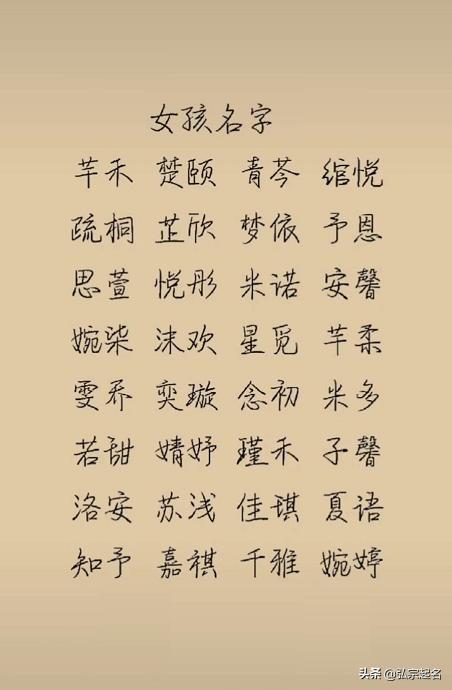 女孩名字
芊禾 楚颐 青芩 绾悦
疏桐 芷欣 梦依 予恩
思萱 悦彤 米诺 安馨
婉柒 沫欢 星觅 芊柔
雯乔 奕璇 念初 米多
若甜 婧妤 瑾禾 子馨
洛安 苏浅 佳琪 夏语
知予 嘉祺 千雅 婉婷
头条 @弘宗起名